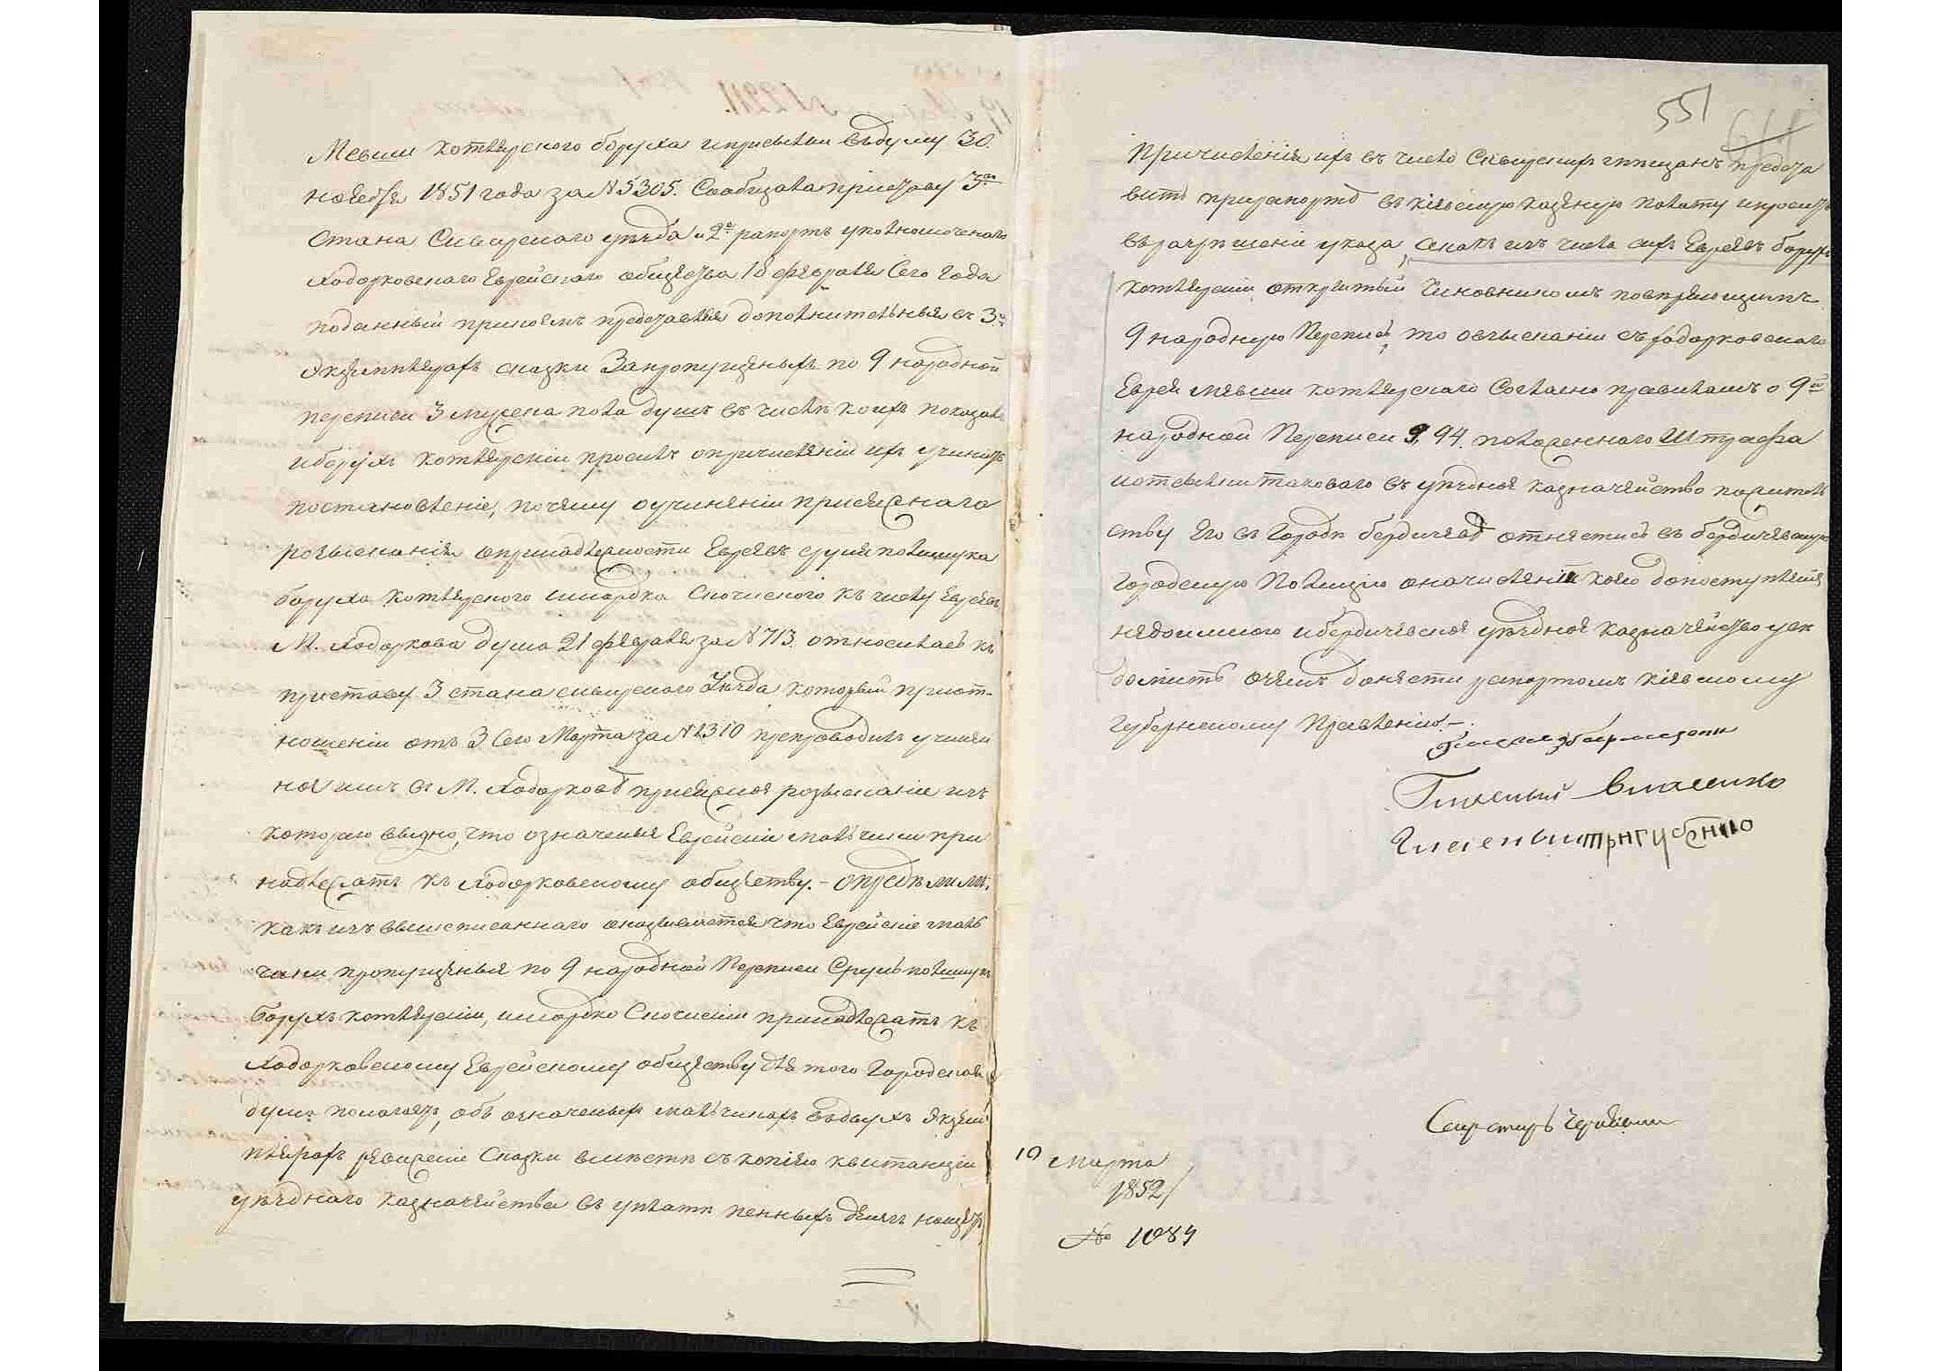 Мевши Котлярского боруха и присылки въ думу 30.
ноября 1851 года за №5305. Сообщала приставу 3го
стана Сквирского уезда и 2е рапортъ уполномоченаго
Ходорковскаго Еврейскаго общества 18 февраля Сего Года
поданный при коемъ представляя дополнительныя въ 3хъ
Экземплярахъ сказки Запропущеныхъ по 9 народной
переписи 3 мужеска пола душъ въ числѣ коихъ показанъ
и борухъ Котлярскій просилъ о причисленіи ихъ учинить
постановленіе, почему о учиненіи присяжнаго
розысканія о принадлежности Евреевъ
боруха Котлярского шмарка к числу Евреевъ
М. Ходоркова дума 21 февраля за №713. относилась къ
приставу 3 стана сквирского Уѣзда который при от-
ношеніи отъ 3 Сего Марта за №1310 препроводилъ учинен
ное имъ въ М. Ходорковѣ присяжное розысканіе изъ
котораго видно, что означеныя Еврейскіе мальчики при
надлежатъ къ Ходорковскому обществу. – опредѣлили:
какъ изъ вышеписаннаго оказывается что Еврейскіе маль
чики пропущеныя по 9 народной Переписи Сруль
Борухъ Котлярскій, шмарко принадлежатъ къ
Ходорковскому Еврейскому обществу для того Городская
дума полагаетъ, объ означеныхъ мальчикахъ въ двухъ Экзем
плярахъ ревизскіе Сказки вместѣ съ копіею квитанціи
уѣзднаго казначейства въ уплатѣ пенныхъ денегъ
551
Причисленія ихъ въ число Сквирскихъ мещанъ предста
вить при рапортѣ въ кіевскую казеную палату и просить
въ разрешеніи указа, а какъ изъ числа сихъ Евреевъ борухъ
Котлярскій открытый Чиновникомъ поверяющимъ
9 народную Перепись, то о взысканіи съ ходорковскаго
Еврея Мевши Котлярскаго Согласно правиламъ о 9й
народной Переписи §. 94. положеннаго Штрафа
и отсылки таковаго въ уездное казначейство по житель
ству Его въ Городѣ бердичевѣ отнестись въ бердичевскую
Городскую Полицію о начисленіи коего до поступленія
недоимкою и бердичевское уездное казначейство уве
домить о чемъ донести рапортомъ кіевскому
Губернскому Правленію. –
Гласный Власенко
Гласный
Секретарь
10 Марта
1852
№ 1084